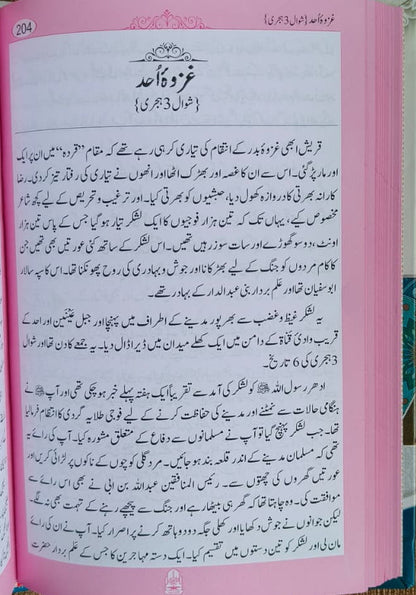 204
غزوۂ اُحد {شوال 3 ہجری}
غزوۂ اُحد
{شوال 3 ہجری}
قریش ابھی غزوۂ بدر کے انتقام کی تیاری کر ہی رہے تھے کہ مقام ”قردہ“ میں ان پر ایک
اور مار پڑ گئی۔ اس سے ان کا غصہ اور بھڑک اٹھا اور انھوں نے تیاری کی رفتار تیز کر دی۔ رضا
کارانہ بھرتی کا دروازہ کھول دیا، حبشیوں کو بھرتی کیا۔ اور ترغیب و تحریص کے لیے کچھ شاعر
مخصوص کیے، یہاں تک کہ تین ہزار فوجیوں کا ایک لشکر تیار ہو گیا جس کے پاس تین ہزار
اونٹ، دو سو گھوڑے اور سات سو زرہیں تھیں۔ اس لشکر کے ساتھ کئی عورتیں بھی تھیں جن
کا کام مردوں کو جنگ کے لیے بھڑکانا اور جوش و بہادری کی روح پھونکنا تھا۔ اس کا سپہ سالار
ابوسفیان تھا اور علم بردار بنی عبدالدار کے بہادر تھے۔
یہ لشکر غیظ و غضب سے بھرپور مدینے کے اطراف میں پہنچا اور جبل عینَین اور احد کے
قریب وادیٔ قناۃ کے دامن میں ایک کھلے میدان میں ڈیرا ڈال دیا۔ یہ جمعے کا دن تھا اور شوال
3 ہجری کی 6 تاریخ۔
ادھر رسول اللہ ﷺ کو لشکر کی آمد سے تقریباً ایک ہفتہ پہلے خبر ہو چکی تھی اور آپ ﷺ نے
ہنگامی حالات سے نمٹنے اور مدینے کی حفاظت کرنے کے لیے فوجی طلایہ گردی کا انتظام فرمالیا
تھا۔ جب لشکر پہنچ گیا تو آپ نے مسلمانوں سے دفاع کے متعلق مشورہ کیا۔ آپ کی رائے یہ
تھی کہ مسلمان مدینے کے اندر قلعہ بند ہو جائیں۔ مرد گلی کوچوں کے ناکوں پر لڑائی کریں اور
عورتیں گھروں کی چھتوں سے۔ رئیس المنافقین عبداللہ بن ابی نے بھی اس رائے سے
موافقت کی۔ وہ چاہتا تھا کہ گھر ہی بیٹھا رہے اور جنگ سے پیچھے رہنے کے تہمت بھی نہ لگے۔
لیکن جوانوں نے جوش دکھایا اور کھلی جگہ دو دو ہاتھ کرنے پر اصرار کیا۔ آپ نے ان کی رائے
مان لی اور لشکر کو تین دستوں میں تقسیم کیا۔ ایک دستہ مہاجرین کا جس کے علم بردار حضرت